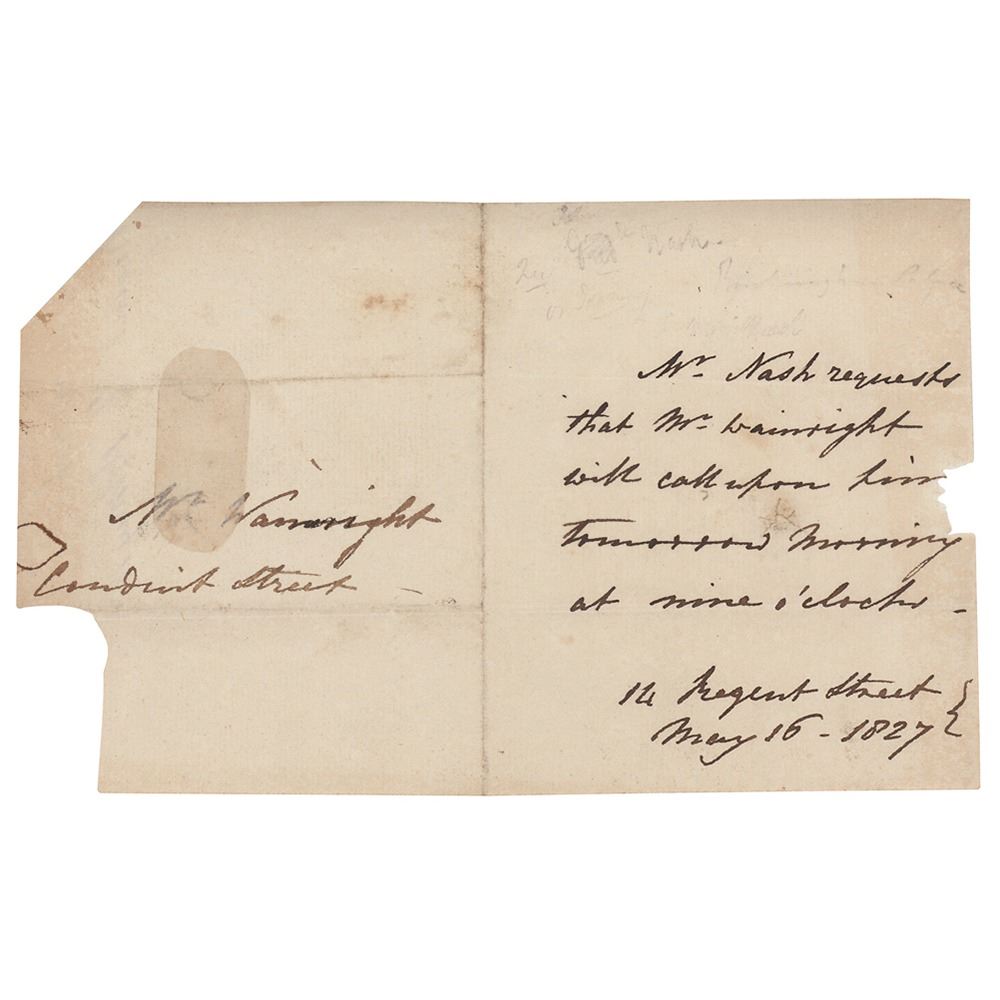 Mr. Wainwright
Conduit Street -
Nash.
Mr. Nash requests
that Mr. Wainwright
will call upon him
tomorrow Morning
at nine o'clock -
14 Regent Street
May 16 - 1827